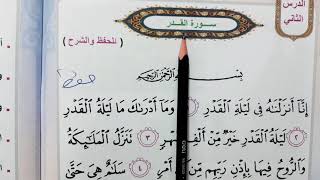 الدرس
الثاني
سورة القدر
(للحفظ والشرح)
بِسْمِ اللَّهِ الرَّحْمَٰنِ الرَّحِيمِ
إِنَّا أَنزَلْنَٰهُ فِى لَيْلَةِ الْقَدْرِ ١ وَمَا أَدْرَىٰكَ مَا لَيْلَةُ الْقَدْرِ
٢ لَيْلَةُ الْقَدْرِ خَيْرٌ مِّنْ أَلْفِ شَهْرٍ ٣ تَنَزَّلُ الْمَلَٰٓئِكَةُ
وَالرُّوحُ فِيهَا بِإِذْنِ رَبِّهِم مِّن كُلِّ أَمْرٍ ٤ سَلَٰمٌ هِىَ حَتَّىٰ